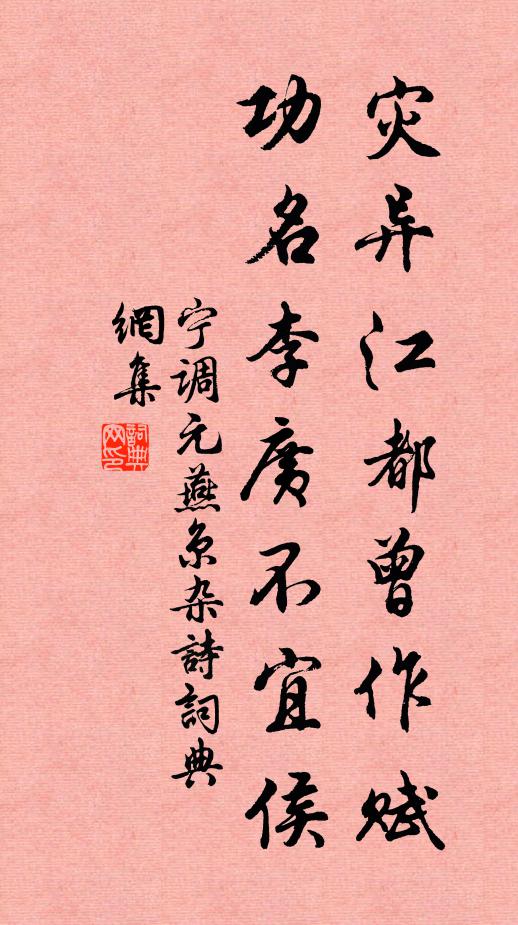 灾异江都曾作赋
功名李广不宜侯
宁调元燕京杂詩詞典
網集
詞典網印